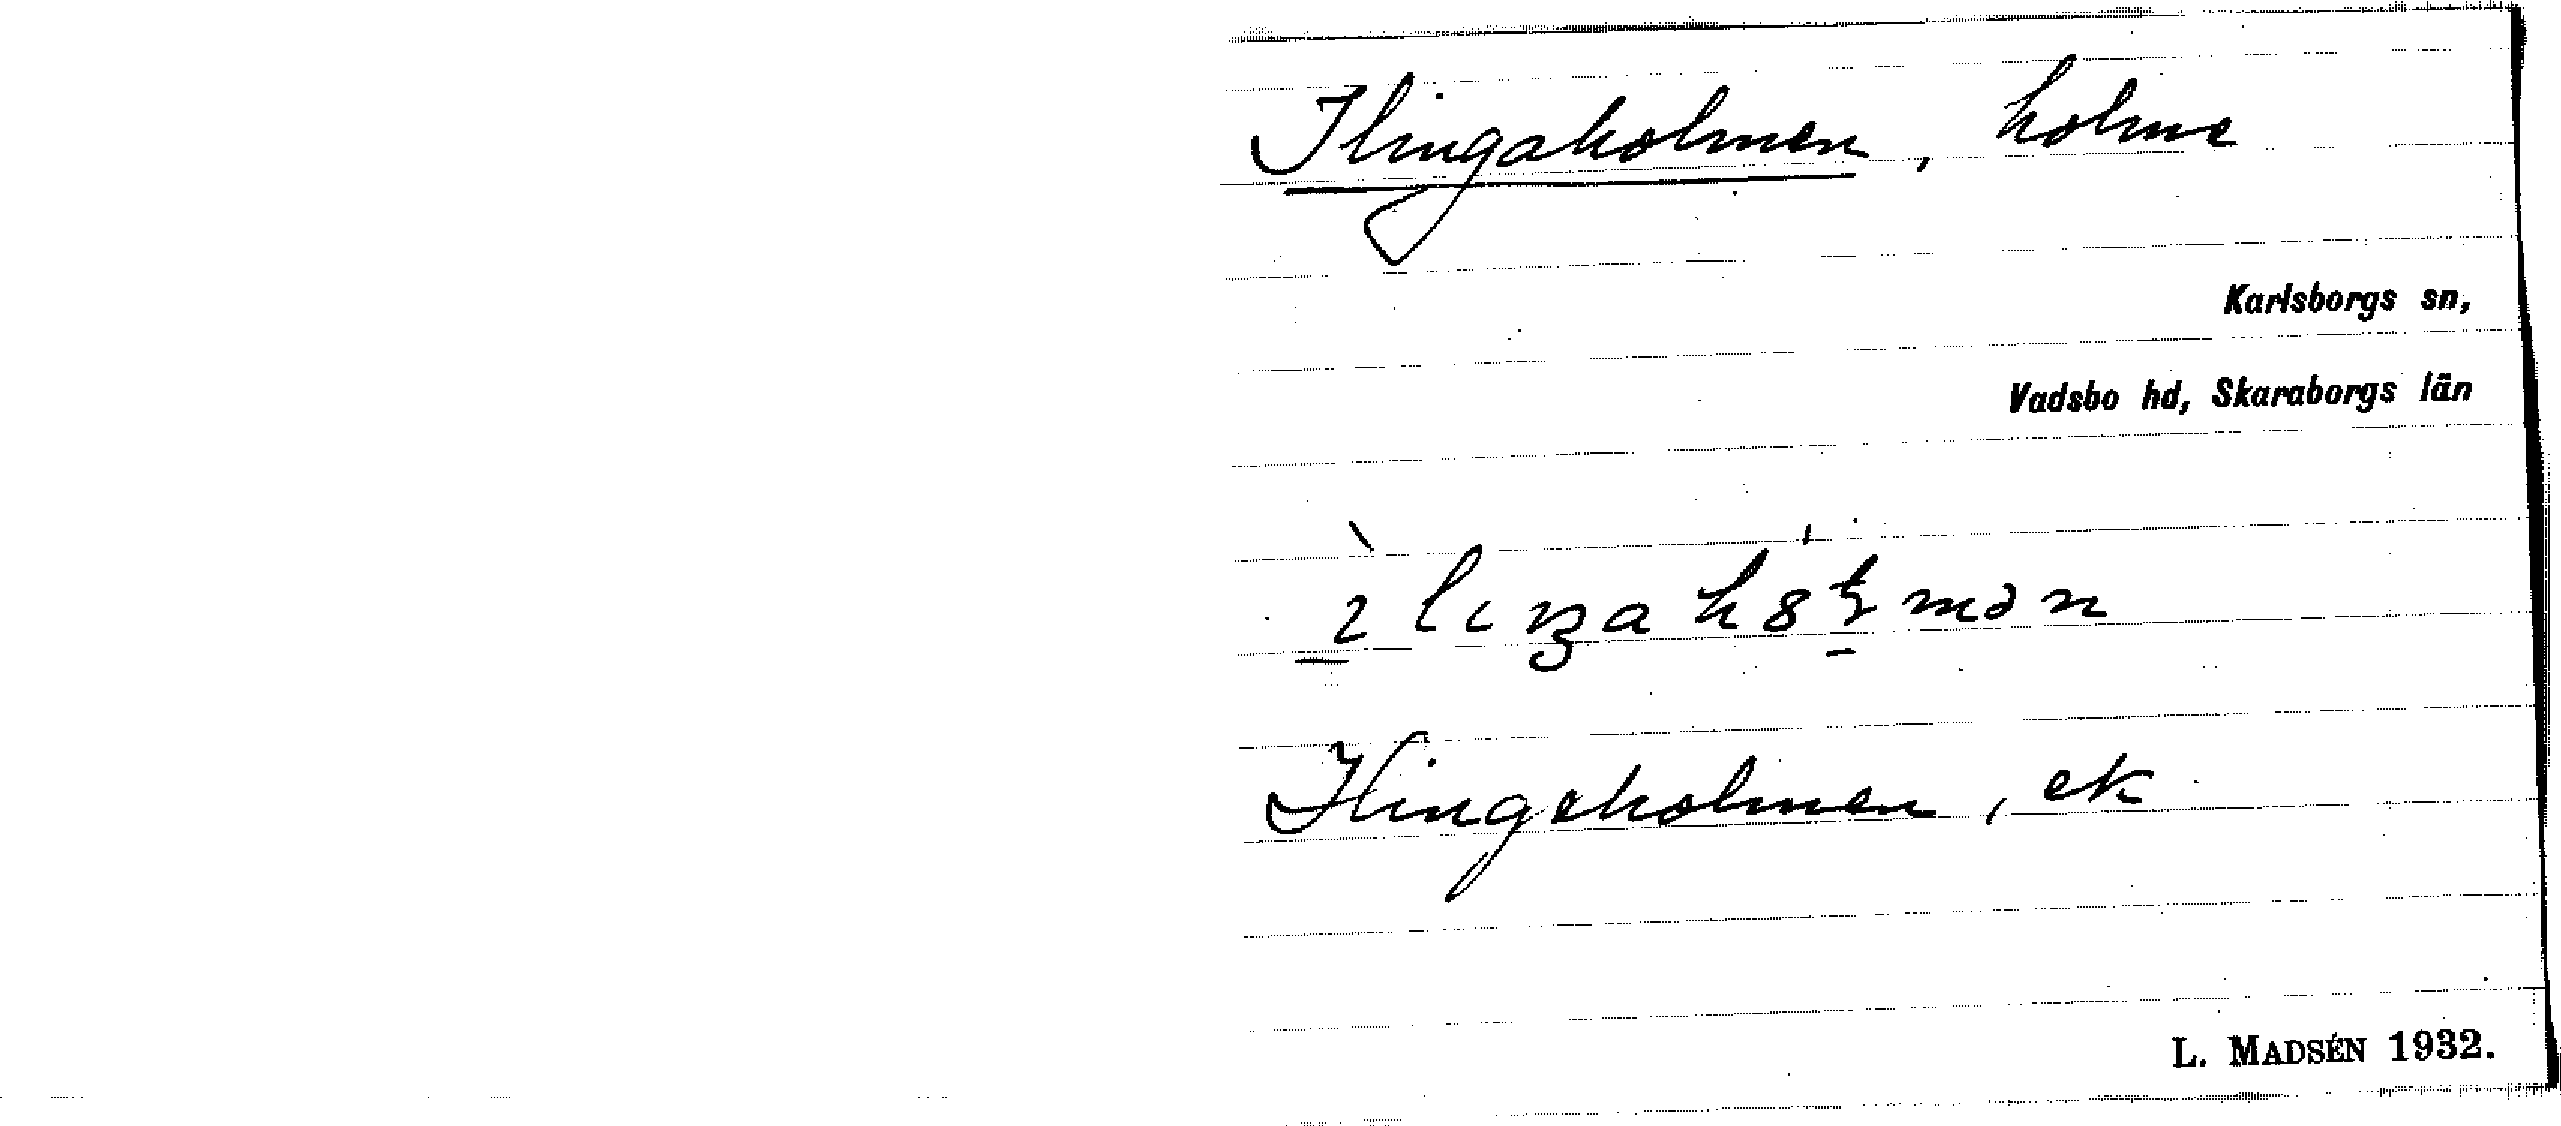 Ilingaholmen, holme
Karlsborgs sn,
Vadsbo hd, Skaraborgs län
Ilingeholmen, ek
L. MADSÉN 1932.